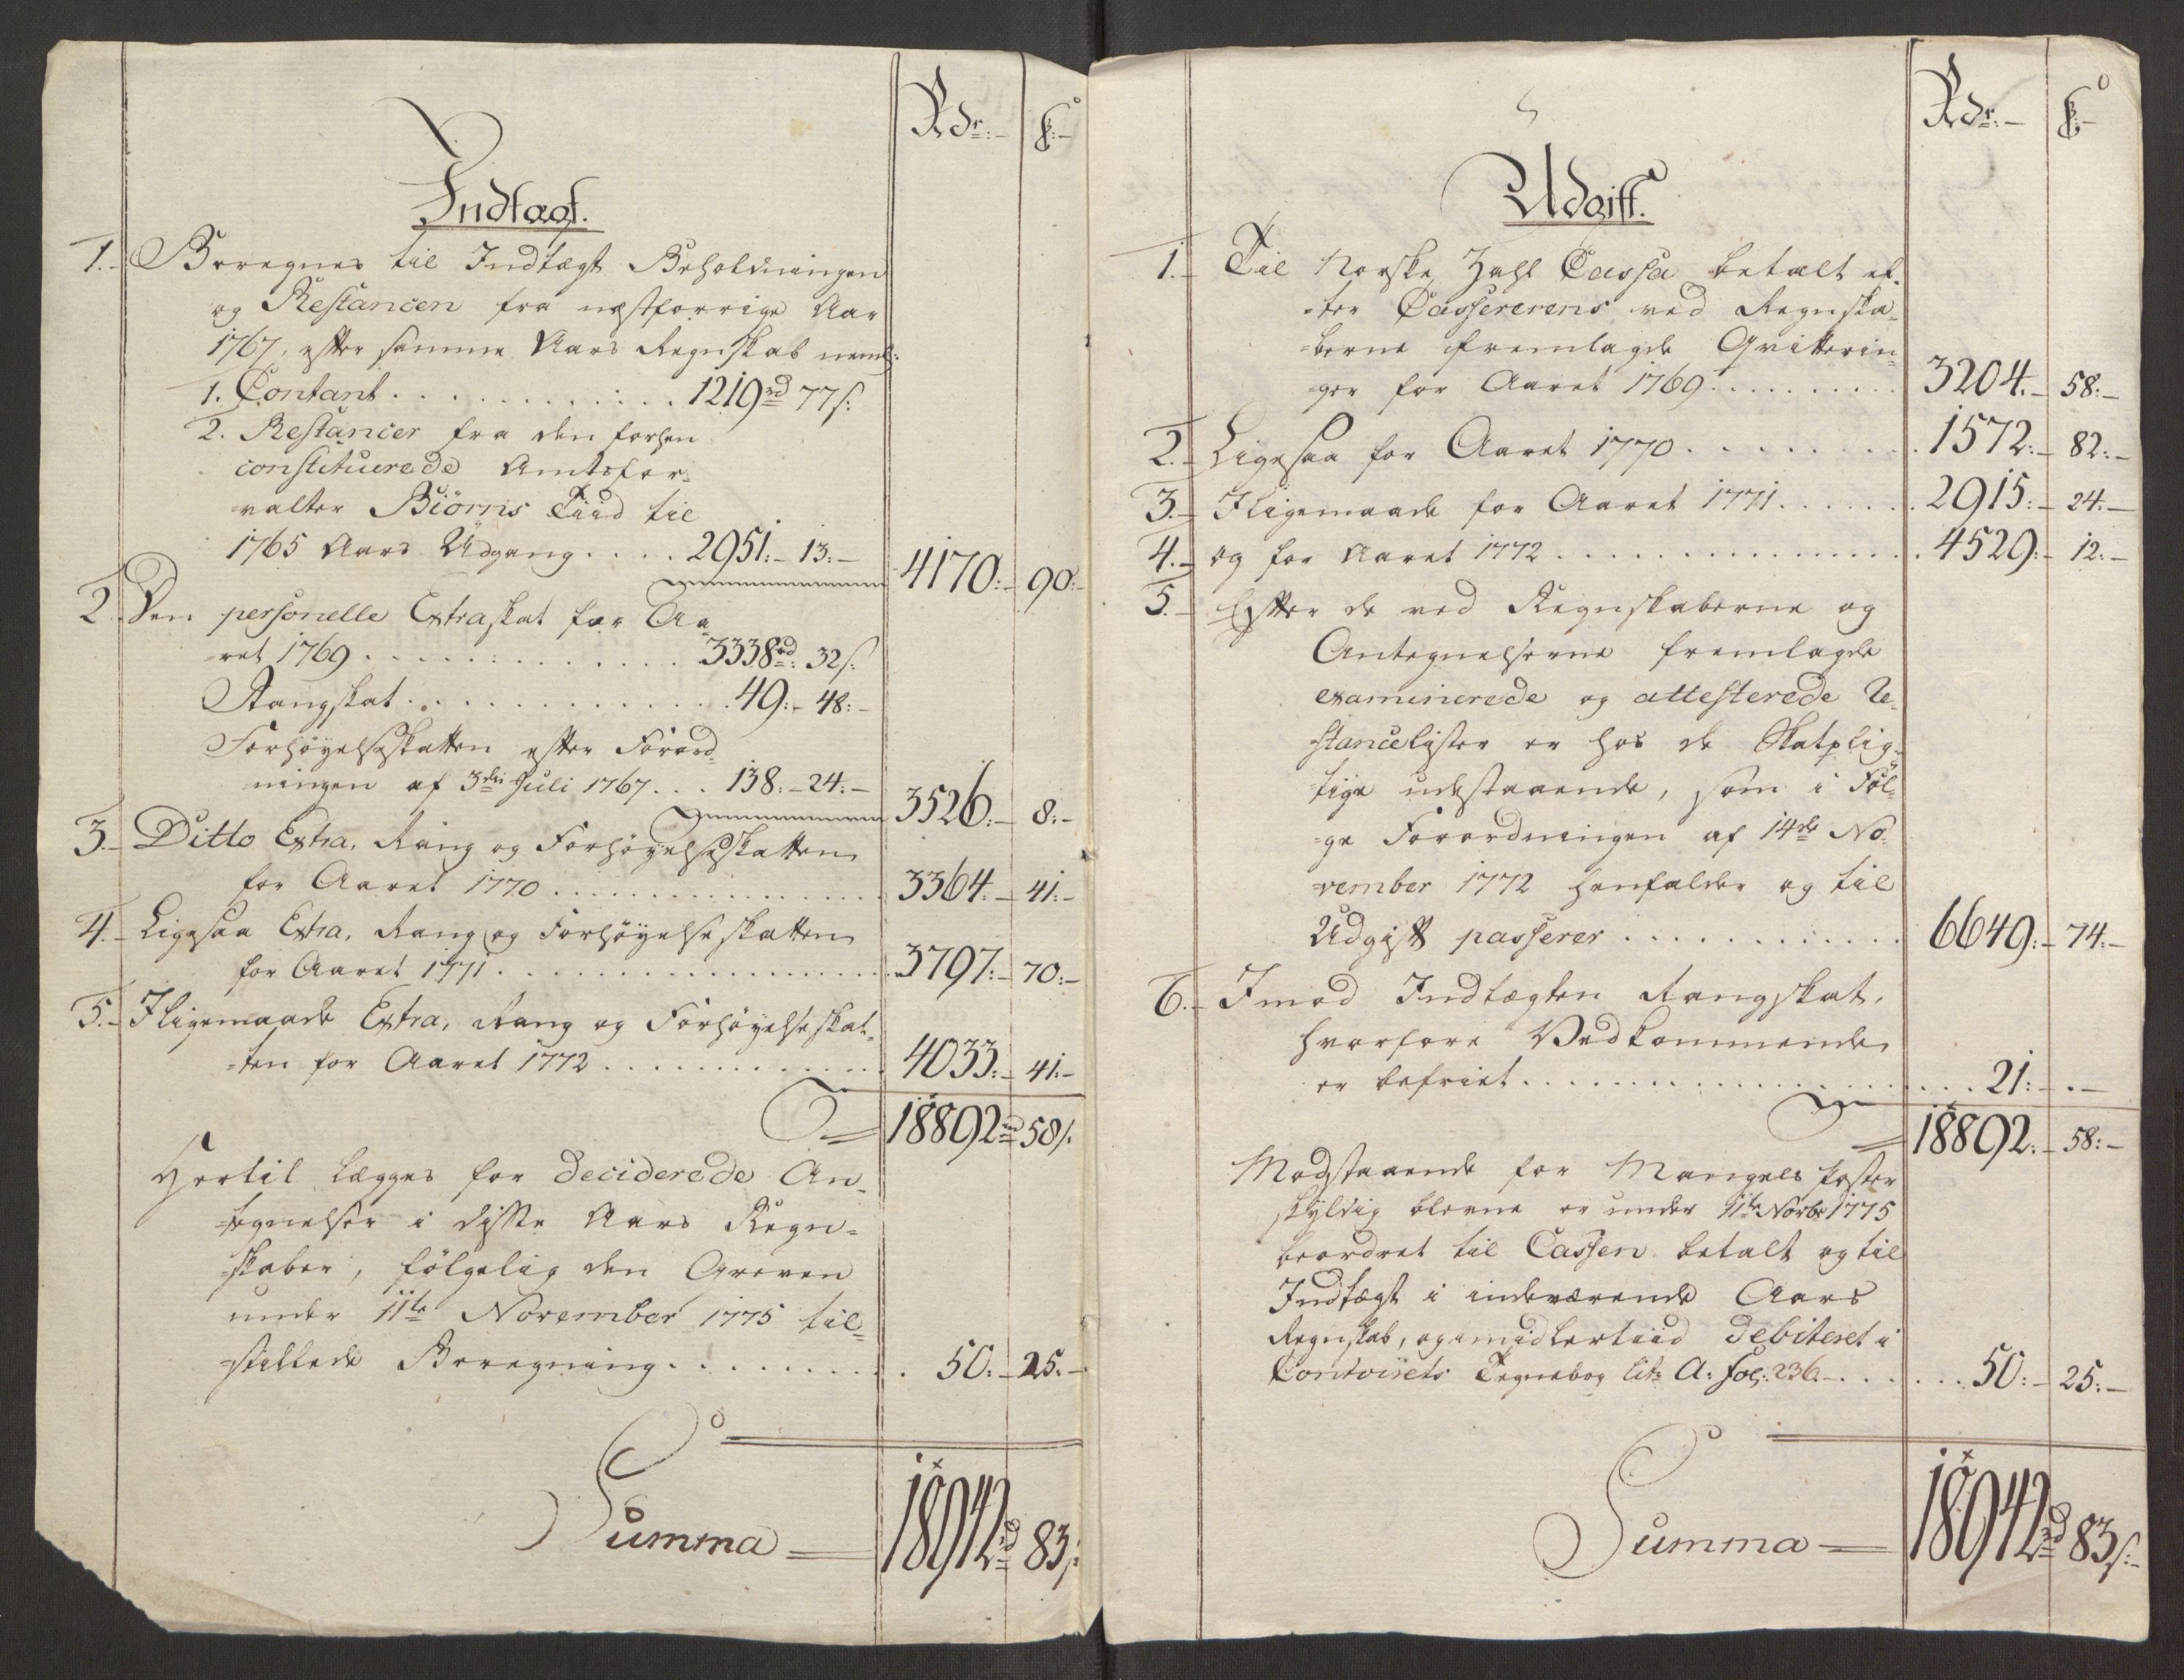 Rdr:- ß:-
Indtægt.
1.- Beregnes til Indtægt Beholdningen
og Restancen fra næstforrige Aar
1767, efter samme Aars Regnskab neml:
1. Contant . . . . . . . . . . . . 1219rd 77ß:
2. Restancer fra den forhen
constituerede Amtsfor-
=valter Biörns Tiid til
1765 Aars Udgang . . . . 2951:- 13:- 4170:- 90:-
2. Den personelle Extraskat for Aa-
=ret 1769 . . . . . . . . . . . . 3338rd: 32ß:
Rangskat . . . . . . . . . . . . 49:- 48:-
Forhöyelsesskatten efter Forord-
ningen af 3die Juli 1767 . . . 138:- 24:- 3526:- 8:-
3.- Ditto Extra, Rang og Forhöyelsesskatten
for Aaret 1770 . . . . . . . . . . . . 3364:- 41:-
4.- Ligesaa Extra, Rang og Forhöyelse skatten
for Aaret 1771 . . . . . . . . . . . . 3797:- 70:-
5.- Iligemaade Extra, Rang og Forhöyelse skat-
=ten for Aaret 1772 . . . . . . . . . . . . 4033:- 41:-
18892rd 58ß.
Hertil lægges for deciderede An-
=tegnelser i disse Aars Regn=
=skaber, fölgelig den Greven
under 11te November 1775 til=
=stillede Beregning . . . . . . . . . 50:- 25:-
Summa = 18942rd 83ß:
Rdr:- ß:-
Udgift.
1.- Til Norske Zahl Cassa betalt ef-
=ter Cassererens ved Regnska-
=berne fremlagde Qvitterin-
=ger for Aaret 1769 . . . . . . . . . 3204.- 58:-
2.- Ligesaa for Aaret 1770 . . . . . . . . 1572:- 82:-
3.- Iligemaade for Aaret 1771 . . . . . . 2915:- 24:-
4.- og for Aaret 1772 . . . . . . . . . . . . 4529:- 12:-
5.- Efter de ved Regnskaberne og
Antegnelserne fremlagde
examinerede og attesterede Re-
stancelister er hos de Skatplig-
tige udestaaende, som i Föl-
=ge Forordningen af 14de No-
=vember 1772 henfalder og til
Udgift passerer . . . . . . . . . . . . 6649:- 74:-
6.- Imod Indtægten Rangskat,
hvorfore Vedkommende
er befriet . . . . . . . . . . . . 21:- .-
18892:- 58:-
Modstaaende for Mangels Poster
skyldig blevne er under 11te Novbr 1775
beordret til Cassen betalt og til
Indtægt i indeværende Aars
Regnskab, og imidlertiid debiteret i
Contoirets Tegnebog lit: A: fol: 236 . . . . . . 50:- 25:-
Summa = 18942rd 83ß:-